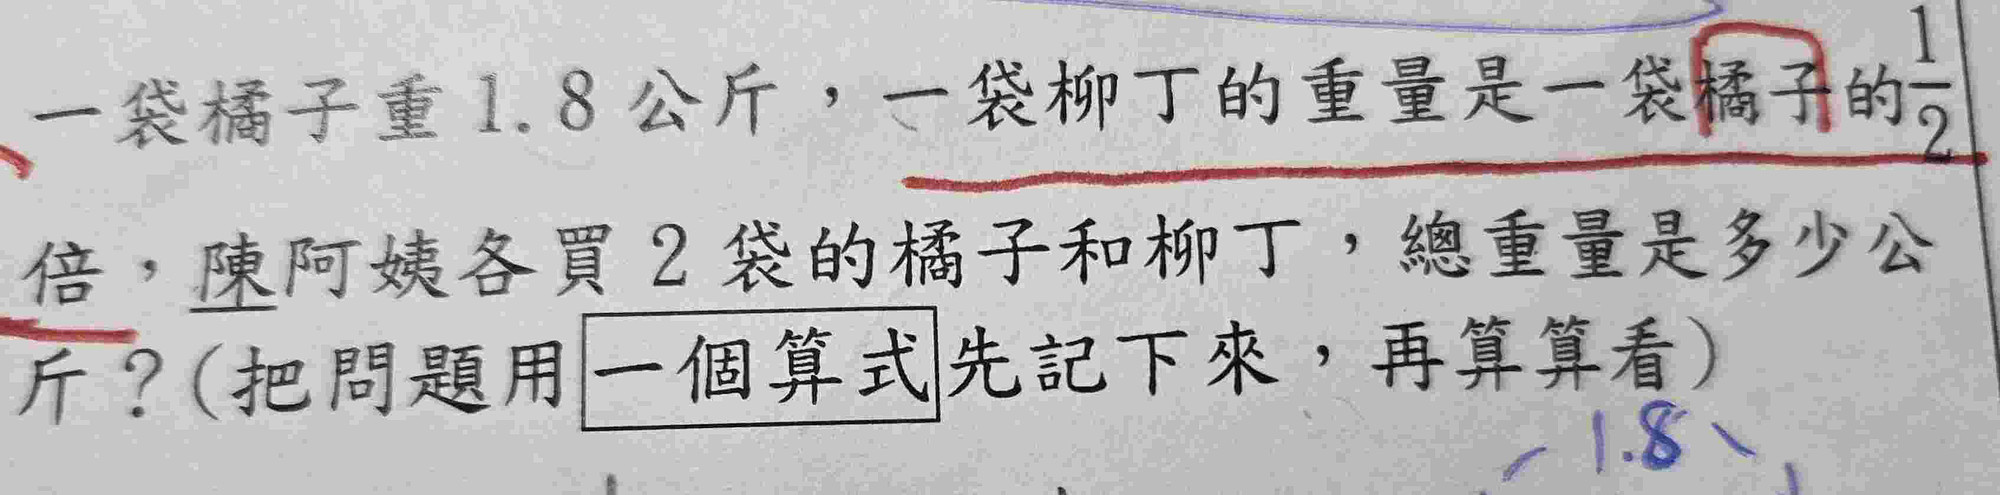 一袋橘子重1.8公斤，一袋柳丁的重量是一袋橘子的1/2
倍，陳阿姨各買2袋的橘子和柳丁，總重量是多少公
斤？(把問題用一個算式先記下來，再算算看)
1.8